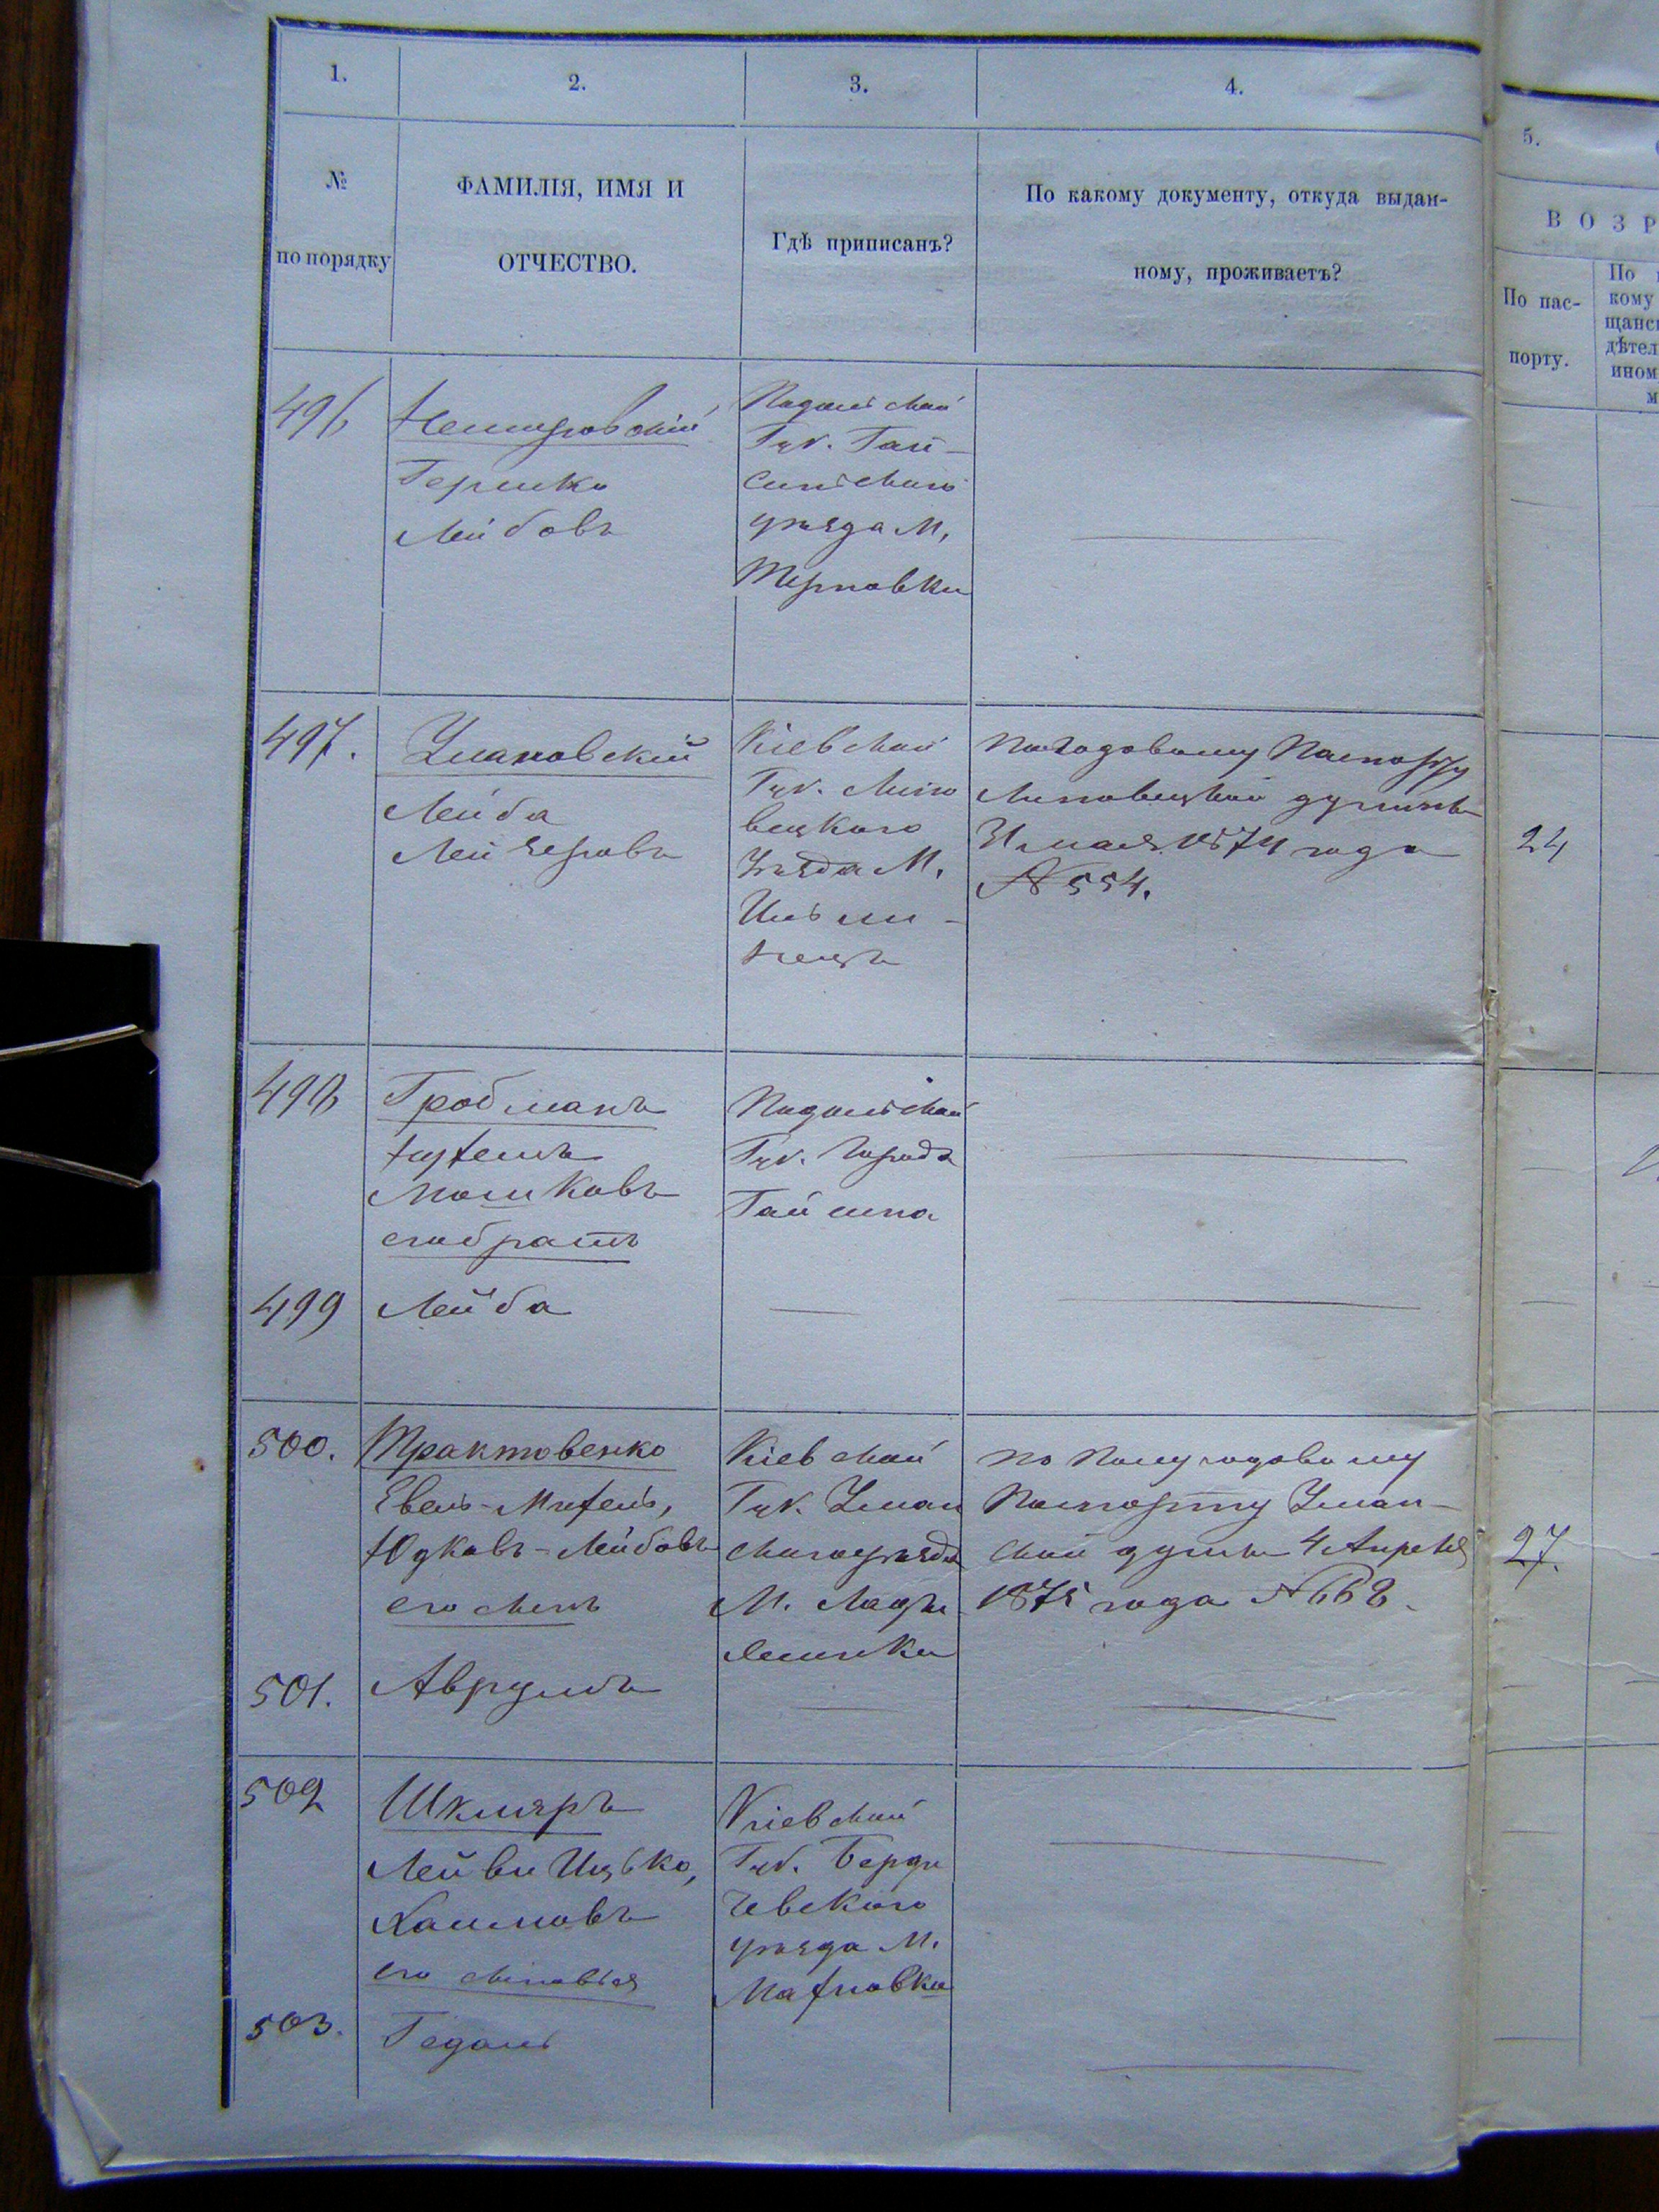 1.
2.
3.
4.
5.
№
по порядку
ФАМИЛІЯ, ИМЯ И
ОТЧЕСТВО.
Гдѣ приписанъ?
По какому документу, откуда выдан-
ному, проживаетъ?
ВОЗР
По пас-
порту.
По
кому
щанс
дѣтел
ином
м
496
Немировскій
Гершко
Лейбовъ
Подольской
Губ. Гай-
синскаго
уѣзда М.
Терновки
497.
Умановскій
Лейба
Лейзеровъ
Кіевской
Губ. Липо
вецкаго
Уѣзда М.
Ильи-
нецъ
По годовому Паспорту
Липовецкой думы
31 мая 1874 года
№ 554.
24
498
Гробманъ
Нухемъ
Мошковъ
его братъ
Подольской
Губ. Города
Гайсина
499
Лейба
500.
Трактовенко
Евель-Михель,
Юдковъ-Лейбовъ
его сынъ
Кіевской
Губ. Уман
скаго уѣзда
М. Лады
женки
по Полугодовому
Паспорту Уман-
ской думы 4 Апреля
1875 года № 662.
27.
501.
Аврумъ
502
Шкляръ
Лейви Ицько,
Хаимовъ
его сыновья
Кіевской
Губ. Берди
чевскаго
уѣзда М.
Махновка
503.
Гедаль